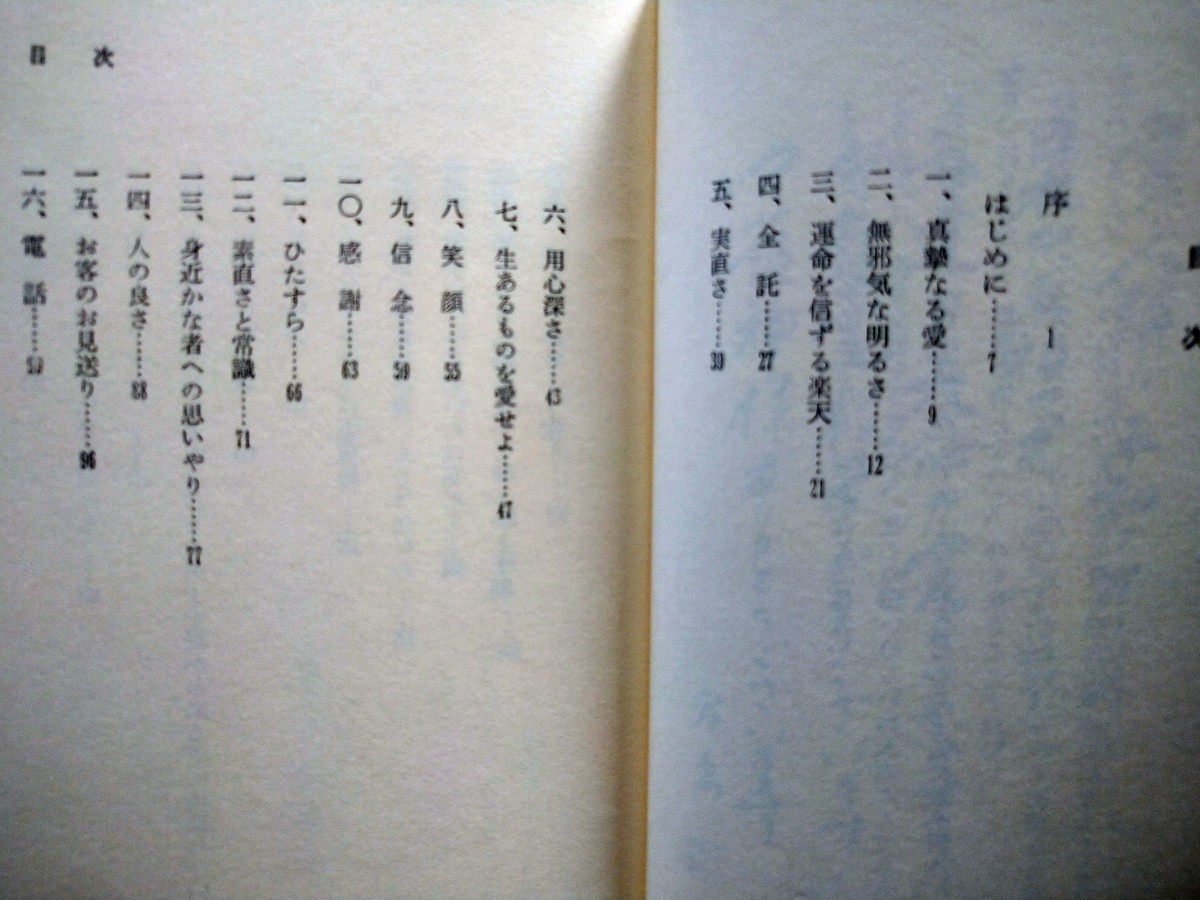 目次
序 1
はじめに……7
一、真摯なる愛……9
二、無邪気な明るさ……12
三、運命を信ずる楽天……21
四、全託……27
五、実直さ……39
目次
六、用心深さ……43
七、生あるものを愛せよ……47
八、笑顔……55
九、信念……59
一〇、感謝……63
一一、ひたすら……66
一二、素直さと常識……71
一三、身近かな者への思いやり……77
一四、人の良さ……88
一五、お客のお見送り……96
一六、電話……99